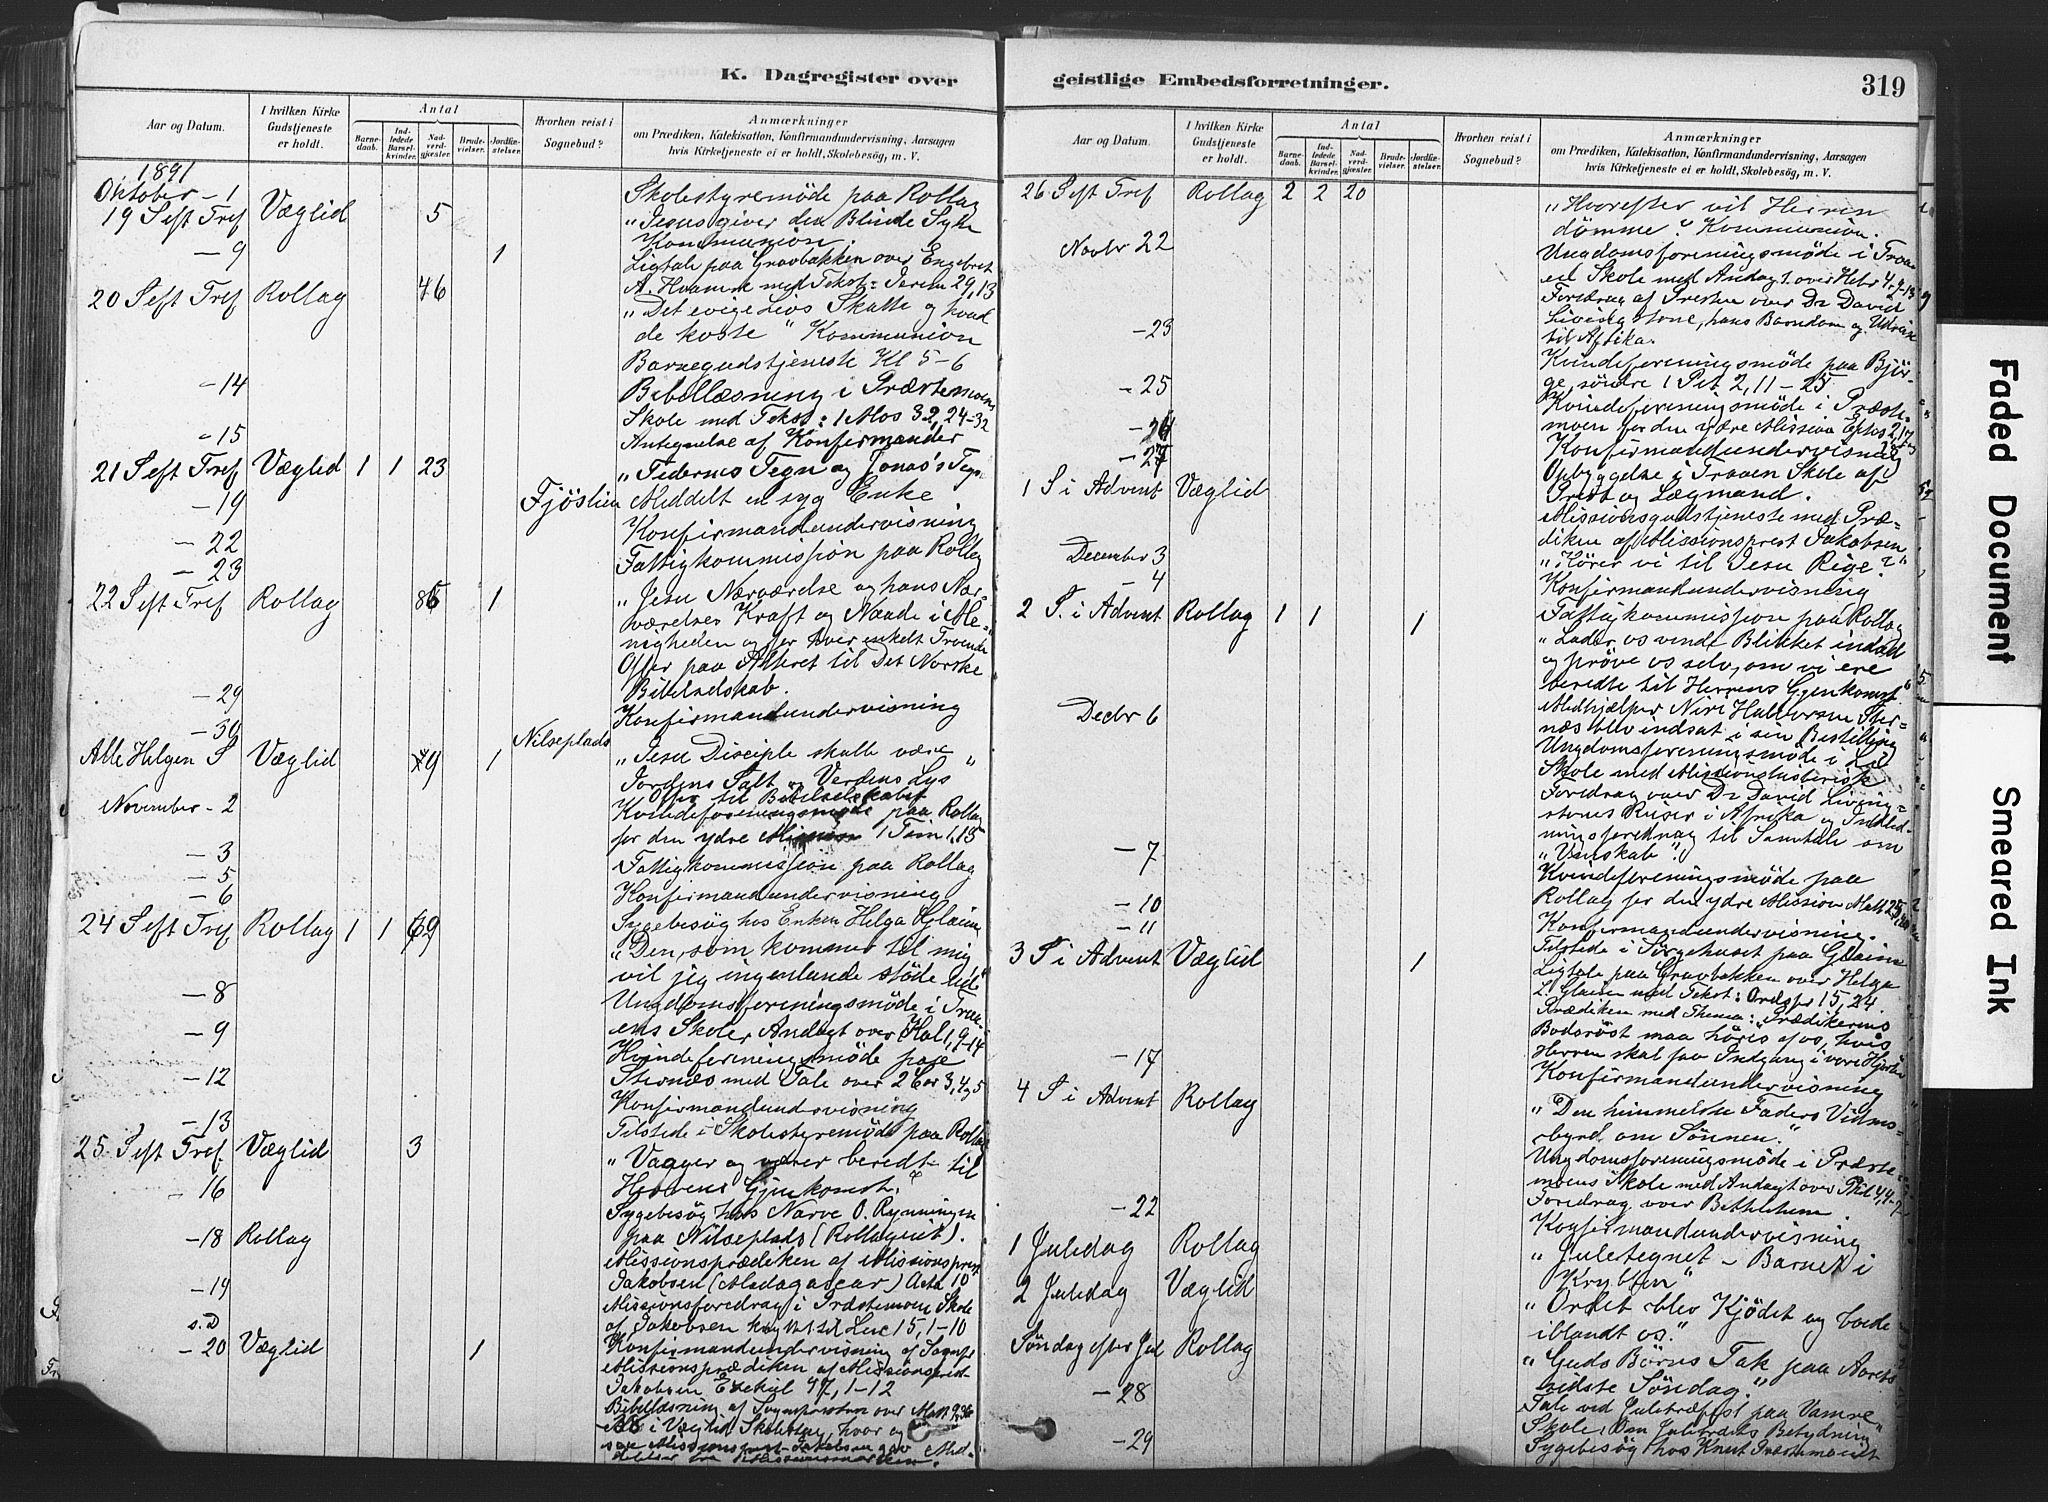 K. Dagregister over
Aar og Datum.
I hvilken Kirke Gudstjeneste er holdt.
Antal
Barne-daab.
Ind-ledede Barsel-kvinder.
Nad-verd-gjæster.
Brude-vielser.
Jordfæ-stelser.
Hvorhen reist i Sognebud?
Anmærkninger
om Prædiken, Katekisation, Konfirmandundervisning, Aarsagen
hvis Kirketjeneste ei er holdt, Skolebesøg, m. V.
1891
Oktober - 1 Skolestyremøde paa Rollag
19 S eft Tref Væglid 5 "Jesus giver den Blinde Syn
Kommunion.
- 9 1 Ligtale paa Gravbakken over Engebret
A. Hvamre med Tekst: Jerem 29,13
20 S eft Tref Rollag 46 "Det evige Livs Skatte og hvad
de koste" Kommunion
Barnegudstjeneste Kl 5-6
- 14 Bibellæsning i Præstemoens
Skole med Tekst: 1 Mos 32,24-32
- 15 Antegnelse af Konfirmander
21 S eft Tref Væglid 1 1 23 "Tidernes Tegn og Jonas's Tegn
- 19 Fjöslien Meddelt en syg Enke
- 22 Konfirmandundervisning
- 23 Fattigkommission paa Rollag
22 S eft Tref Rollag 86 1 "Jesu Nærværelse og hans Nær-
værelses Kraft og Naade i Me-
nigheden og for hver enkelt Troende"
Offer paa Alteret til Det Norske
Bibelselskab.
- 29 Konfirmandundervisning
- 30 Nilseplads
Alle Helgen S Væglid 9 1 "Jesu Disciple skulle være
Jordens Salt og Verdens Lys"
Offer til Bibelselskabet
November - 2 Kvindeforeningsmøde paa Rollag
for den ydre Mission 1 Tim 1,15
- 3 Fattigkommission paa Rollag
- 5 Konfirmandundervisning
- 6 Sygebesøg hos Enken Helga Glaim
24 S eft Tref Rollag 1 1 69 "Den, som kommer til mig
vil jeg ingenlunde støde ud"
- 8 Ungdomsforeningsmøde i Traa-
ens Skole, Andagt over Kol 1,9-14
- 9 Kvindeforeningsmøde paa
Sternæs med Tale over 2 Cor 3,4,5
- 12 Konfirmandundervisning
- 13 Tilstede i Skolestyremøde paa Rollag
25 S eft Tref Væglid 3 "Vaager og værer beredt til
Herrens Gjenkomst"
- 16 Sygebesøg hos Narve O. Rynningen
paa Nilseplads (Rollagseiet).
- 18 Rollag Missionsprædiken af Missionsprest
Jakobsen (Madagascar) Acta 10
- 19 Missionsforedrag i Præstemoens Skole
af Jakobsen Luc 15,1-10
s.D Konfirmandundervisning af Sognepr
- 20 Væglid 1 Missionsprædiken af Missionsprest
Jakobsen Ezekiel 47,1-12
Bibellæsning af Sognepresten over Matt 9,36-
38 i Væglid Skolestue, hvor og-
saa Missionsprest Jakobsen gav Med-
delelser fra Missionsmarken.
geistlige Embedsforretninger.
319
Aar og Datum.
I hvilken Kirke Gudstjeneste er holdt.
Antal
Barne-daab.
Ind-ledede Barsel-kvinder.
Nad-verd-gjæster.
Brude-vielser.
Jordfæ-stelser.
Hvorhen reist i Sognebud?
Anmærkninger
om Prædiken, Katekisation, Konfirmandundervisning, Aarsagen
hvis Kirketjeneste ei er holdt, Skolebesøg, m. V.
26 S eft Tref Rollag 2 2 20 "Hvorefter vil Herren
dömme?" Kommunion.
Novbr 22 Ungdomsforeningsmøde i Traa-
en Skole med Andagt over Hebr 4,9-13
Foredrag af Presten over Dr David
Livingstone, hans Barndom og Udreise
til Afrika.
- 23 Kvindeforeningsmøde paa Bjør-
ge, söndre 1 Pet 2,11-25
- 25 Kvindeforeningsmøde i Præste-
moen for den ydre Mission Efes 2,17
- 26 Konfirmandundervisning
- 27 Opbyggelse i Traaen Skole af
Prest og Lægmand.
1 S i Advent Væglid Missionsgudstjeneste med Præ-
diken af Missionsprest Jakobsen
"Hører vi til Jesu Rige?"
December 3 Konfirmandundervisning
- 4 Fattigkommission paa Rollag
2 S. i Advent Rollag 1 1 1 "Lader os vende Blikket indad
og prøve os selv, om vi ere
beredte til Herrens Gjenkomst"
Medhjælper Niri Halvorsen Ster-
næs blev indsat i sin Bestilling
Decbr 6 Ungdomsforeningsmøde i
Skole med Missionshistorisk
Foredrag over Dr David Living-
stones Reiser i Afrika og Indled-
ningsforedrag til Samtale om
"Venskab".
- 7 Kvindeforeningsmøde paa
Rollag for den ydre Mission Matt 25
- 10 Konfirmandundervisning.
- 11 Tilstede i Sørgehuset paa Glaim
3 S i Advent Væglid 1 Ligtale paa Gravbakken over Helga
L. Glaim med Tekst: Ordspr 15,24.
Prædiken med Thema: Prædikerens
Bodsröst maa høres af os, hvis
Herren skal faa Indgang i vore Hjerter
- 17 Konfirmandundervisning
4 S i Advent Rollag "Den himmelske Faders Vidnes-
byrd om Sønnen."
Ungdomsforeningsmøde i Præste-
moens Skole med Andagt over Phil 4,4-7
Foredrag over Bethlehem.
- 22 Konfirmandundervisning
1 Juledag Rollag "Juletegnet - Barnet i
Krybben"
2 Juledag Væglid "Ordet blev Kjödet og boede
iblandt os."
Söndag efter Jul Rollag "Guds Börns Tak paa Aarets
sidste Söndag."
- 28 Tale ved Juletræfest paa Vamre
Skole: Om Juletræets Betydning
- 29 Sygebesøg hos Knut Præstemoeiet
Faded Document
Smeared Ink